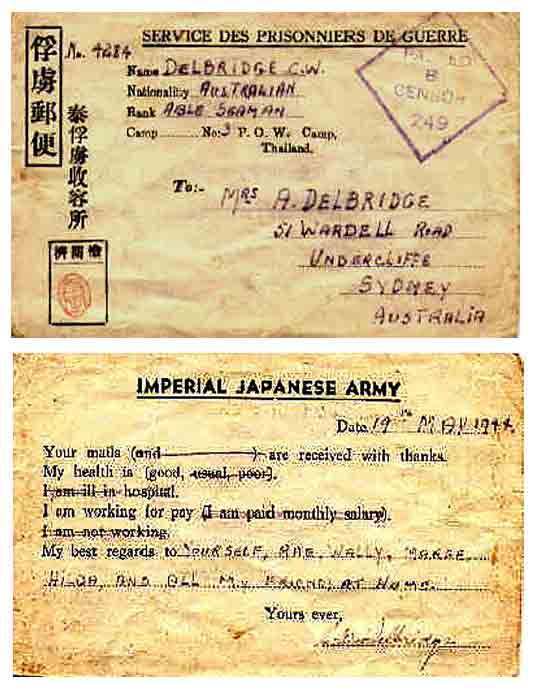 俘虜郵便
泰俘虜收容所
檢閲濟
No. 4284
SERVICE DES PRISONNIERS DE GUERRE
Name DELBRIDGE C.W.
Nationality AUSTRALIAN
Rank ABLE SEAMAN
Camp No: 3 P. O. W. Camp,
Thailand.
B
CENSOR
249
To:- MRS A. DELBRIDGE
51 WARDELL ROAD
UNDERCLIFFE
SYDNEY
AUSTRALIA
IMPERIAL JAPANESE ARMY
Date 19th MAY 1944.
Your mails (and ) are received with thanks.
My health is (good, usual, poor).
I am ill in hospital.
I am working for pay (I am paid monthly salary).
I am not working.
My best regards to YOURSELF, RAE, WALLY, MARGE
HILDA, AND ALL MY FRIENDS AT HOME.
Yours ever,